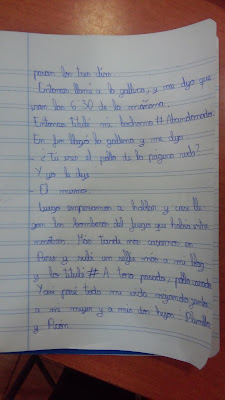 pasan los tres días.
Entonces llamé a la gallina, y me dijo que
eran las 6:30 de la mañana.
Entonces titulé mi bochorno #Abandonados.
En fin llegó la gallina y me dijo
- ¿Tú eres el pollo de la página nueda?
Y yo le dije
- El mismo.
Luego empezamos a hablar y casi lle-
gan los bomberos del fuego que había entre
nosotros. Más tarde nos casamos en
París y subí un selfie mío a mi blog
y lo titulé # A toro pasado, pollo casado
Y así pasé toda mi vida viajando junto
a mi mujer y a mis dos hijos
y